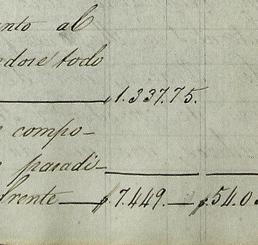 ento al
ndose todo
$1.337.75.
compo-
pasadi-
frente $7.449.— $54.0